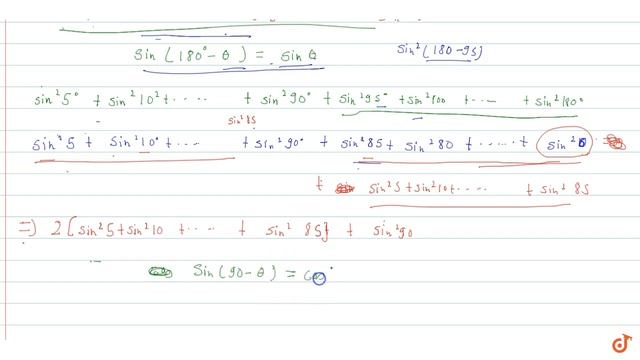 sin(180° - θ) = sin θ    sin²(180 - 95)
sin²5° + sin²10° + ..... + sin²90° + sin²95° + sin²100 + ..... + sin²180°
sin²85
sin²5 + sin²10° + ..... + sin²90° + sin²85 + sin²80 + ...... + sin²0
+ sin²5 + sin²10 + ..... + sin²85
=> 2[sin²5 + sin²10 + .... + sin²85} + sin²90
sin(90 - θ) = cos